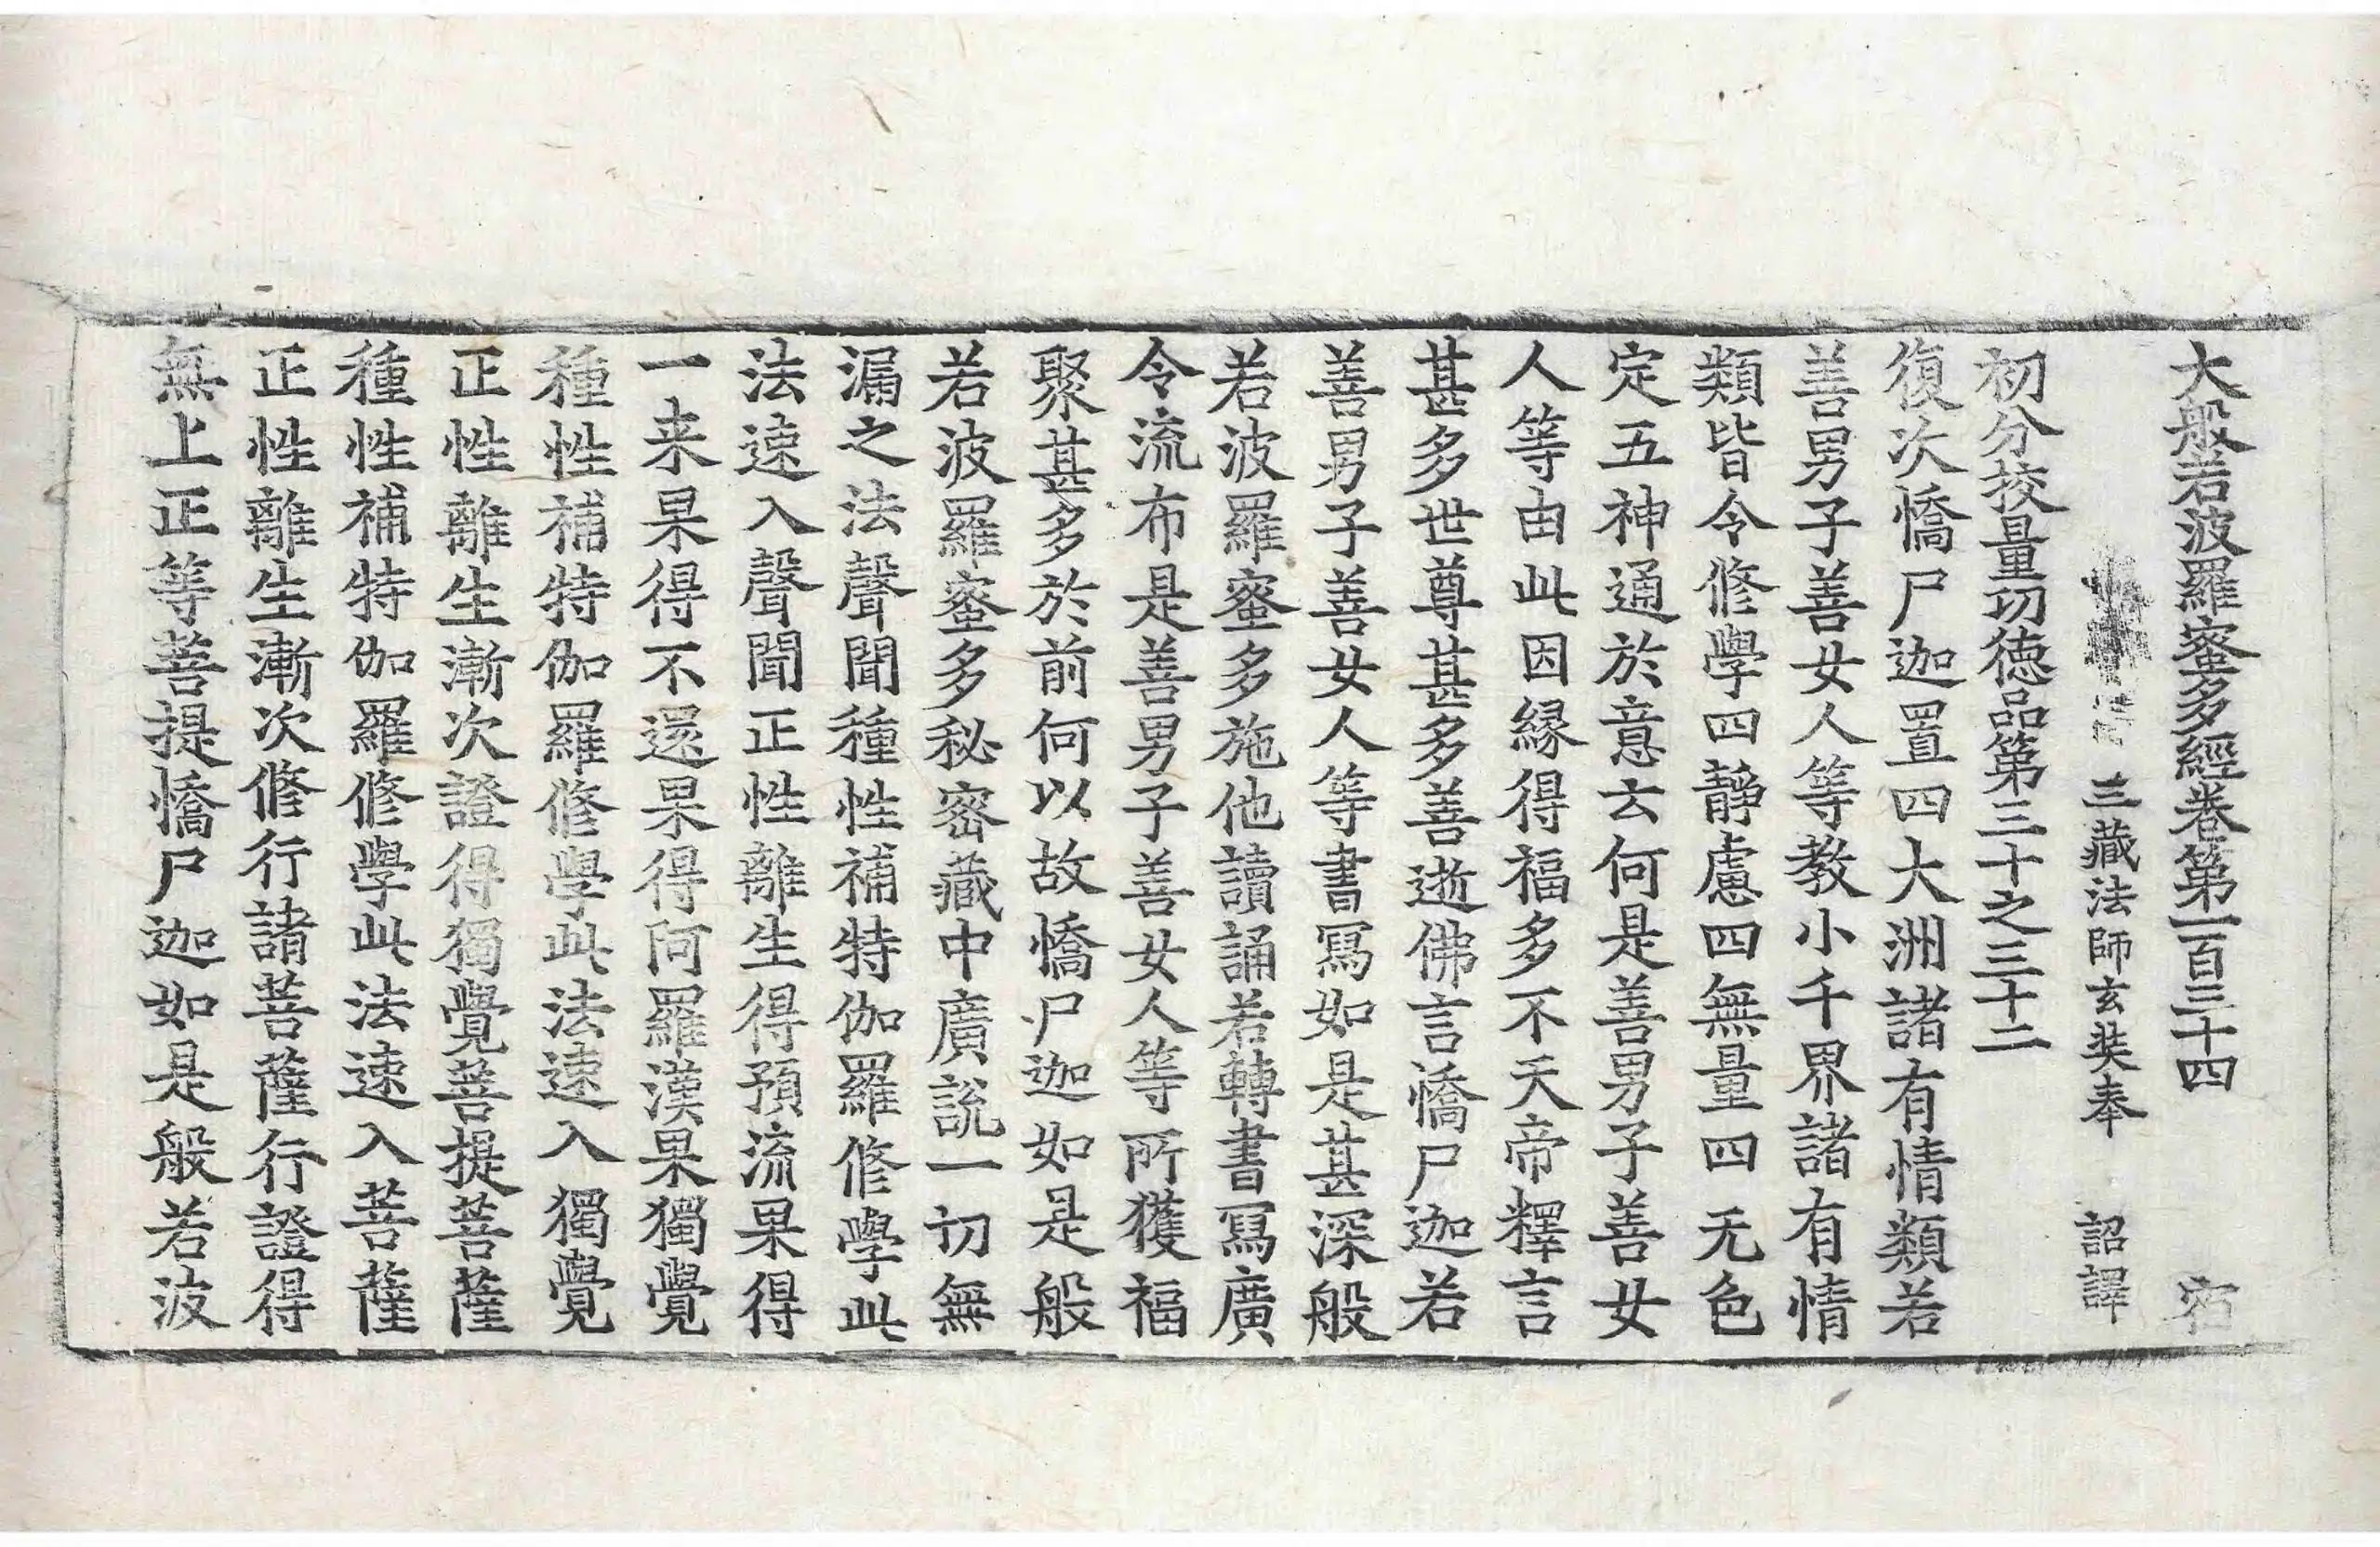 大般若波羅蜜多經卷第一百三十四 宿
三藏法師玄奘奉 詔譯
初分挍量功德品第三十之三十二
復次憍尸迦置四大洲諸有情類若
善男子善女人等教小千界諸有情
類皆令修學四靜慮四無量四无色
定五神通於意云何是善男子善女
人等由此因緣得福多不天帝釋言
甚多世尊甚多善逝佛言憍尸迦若
善男子善女人等書寫如是甚深般
若波羅蜜多施他讀誦若轉書寫廣
令流布是善男子善女人等所獲福
聚甚多於前何以故憍尸迦如是般
若波羅蜜多秘密藏中廣說一切無
漏之法聲聞種性補特伽羅修學此
法速入聲聞正性離生得預流果得
一来果得不還果得阿羅漢果獨覺
種性補特伽羅修學此法速入獨覺
正性離生漸次證得獨覺菩提菩薩
種性補特伽羅修學此法速入菩薩
正性離生漸次修行諸菩薩行證得
無上正等菩提憍尸迦如是般若波